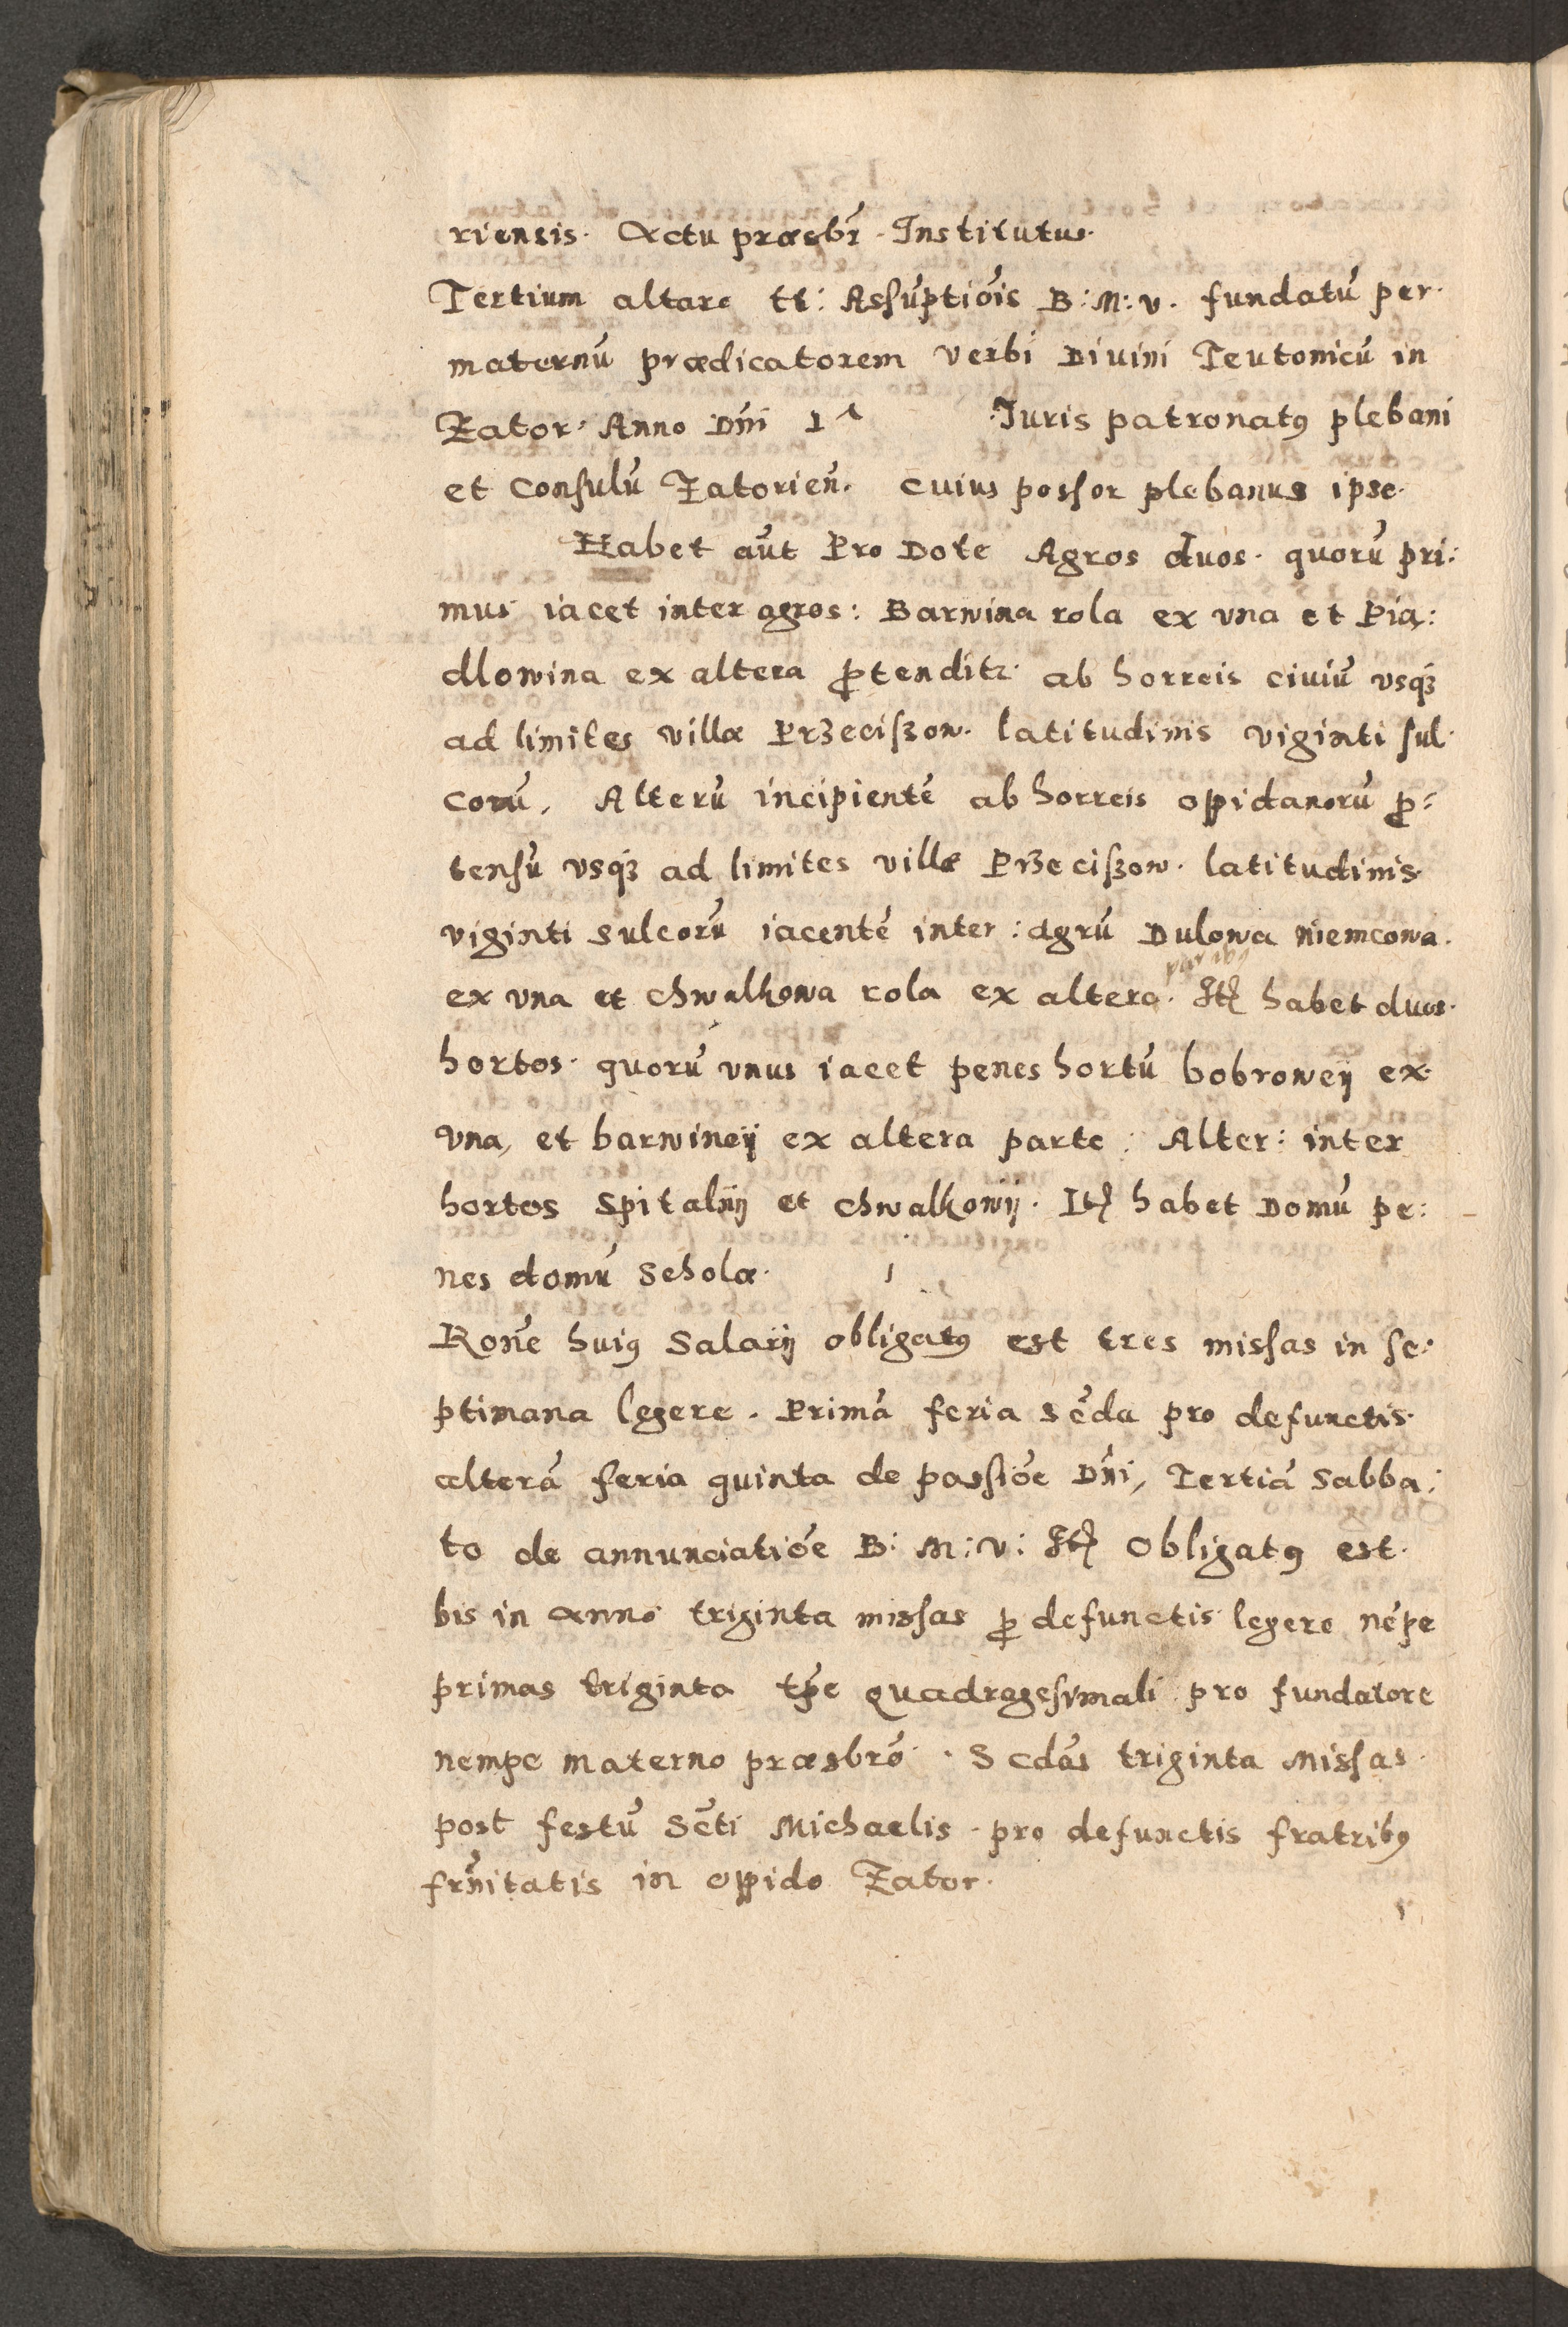 riensis. Actu præsbr̃. Institutus.
Tertium altare tt: Assũptiõis B: M: v. fundatũ per
maternũ prædicatorem verbi Diuini Teutonicũ in
Zator. Anno Dñi 1^ Iuris patronatꝰ plebani
et Consulũ Zatorieñ. cuius possor plebanus ipse.
Habet aũt Pro Dote Agros duos. quorũ pri:
mus iacet inter agros: Barwina rola ex vna et Pią:
dlowina ex altera ꝓtenditꝛ. ab horreis ciuiũ vsqꝫ
ad limites villæ Przeciszow. latitudinis viginti sul
corũ, Alterũ incipientẽ ab horreis oppidanorũ ꝓ:
tensũ vsqꝫ ad limites villæ Przeciszow. latitudinis
viginti sulcorũ iacentẽ inter: agrũ Dulowa niemcowa.
partibꝰ
ex vna et chwalkowa rola ex altera. Itẽ habet duos.
hortos. quorũ vnus iacet penes hortũ bobroweij ex
vna, et barwineij ex altera parte: Alter: inter
hortos Spitalnij et chwalkowij. Itẽ habet Domũ pe:
nes domũ Scholæ.
Rõne huiꝰ Salarij obligatꝰ est tres missas in se:
ptimana legere. Primã feria sc̃da pro defunctis.
alterã feria quinta de passiõe Dñi, Tertiã Sabba:
to de annunciatiõe B: M: v: Itẽ Obligatꝰ est.
bis in anno triginta missas ꝓ defunctis legere nẽpe
primas triginta tp̃e quadragesimali pro fundatore
nempe materno præsbrõ. Scdãs triginta Missas.
post festũ Sc̃ti Michaelis. pro defunctis fratribꝰ
frñitatis in oppido Zator.